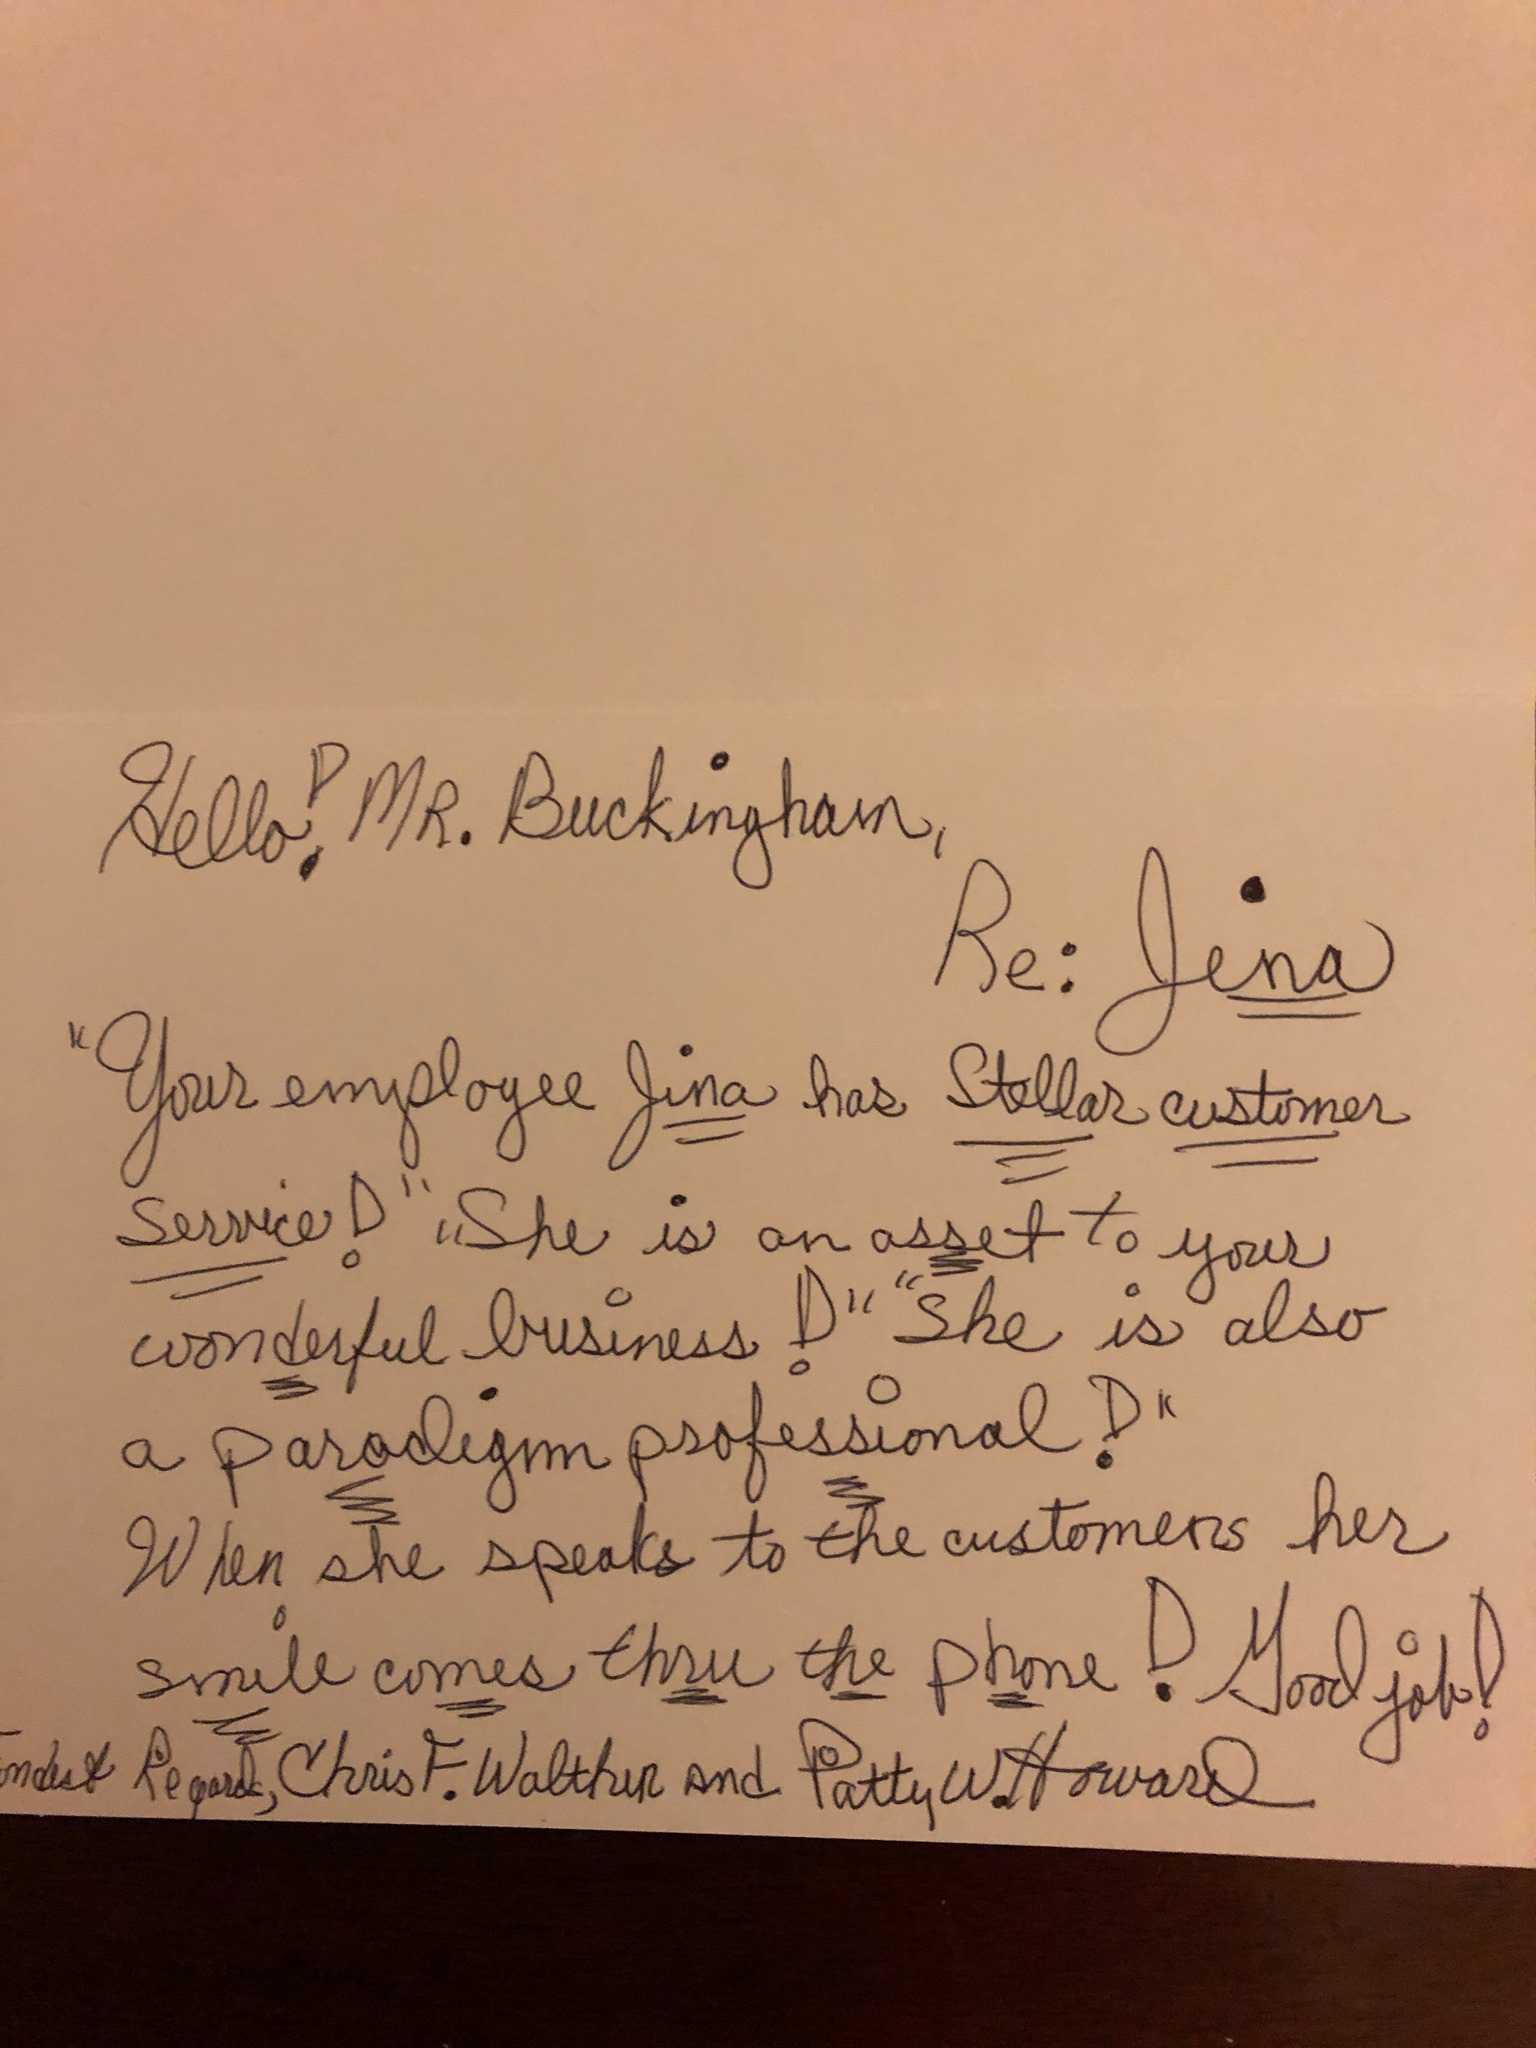 Hello! Mr. Buckingham,
Re: Jina
"Your employee Jina has Stellar customer
service!" "She is an asset to your
wonderful business!" "She is also
a paradigm professional!"
When she speaks to the customers her
smile comes thru the phone! Good job!
Fondest Regards, Chris F. Walther and Patty W. Howard